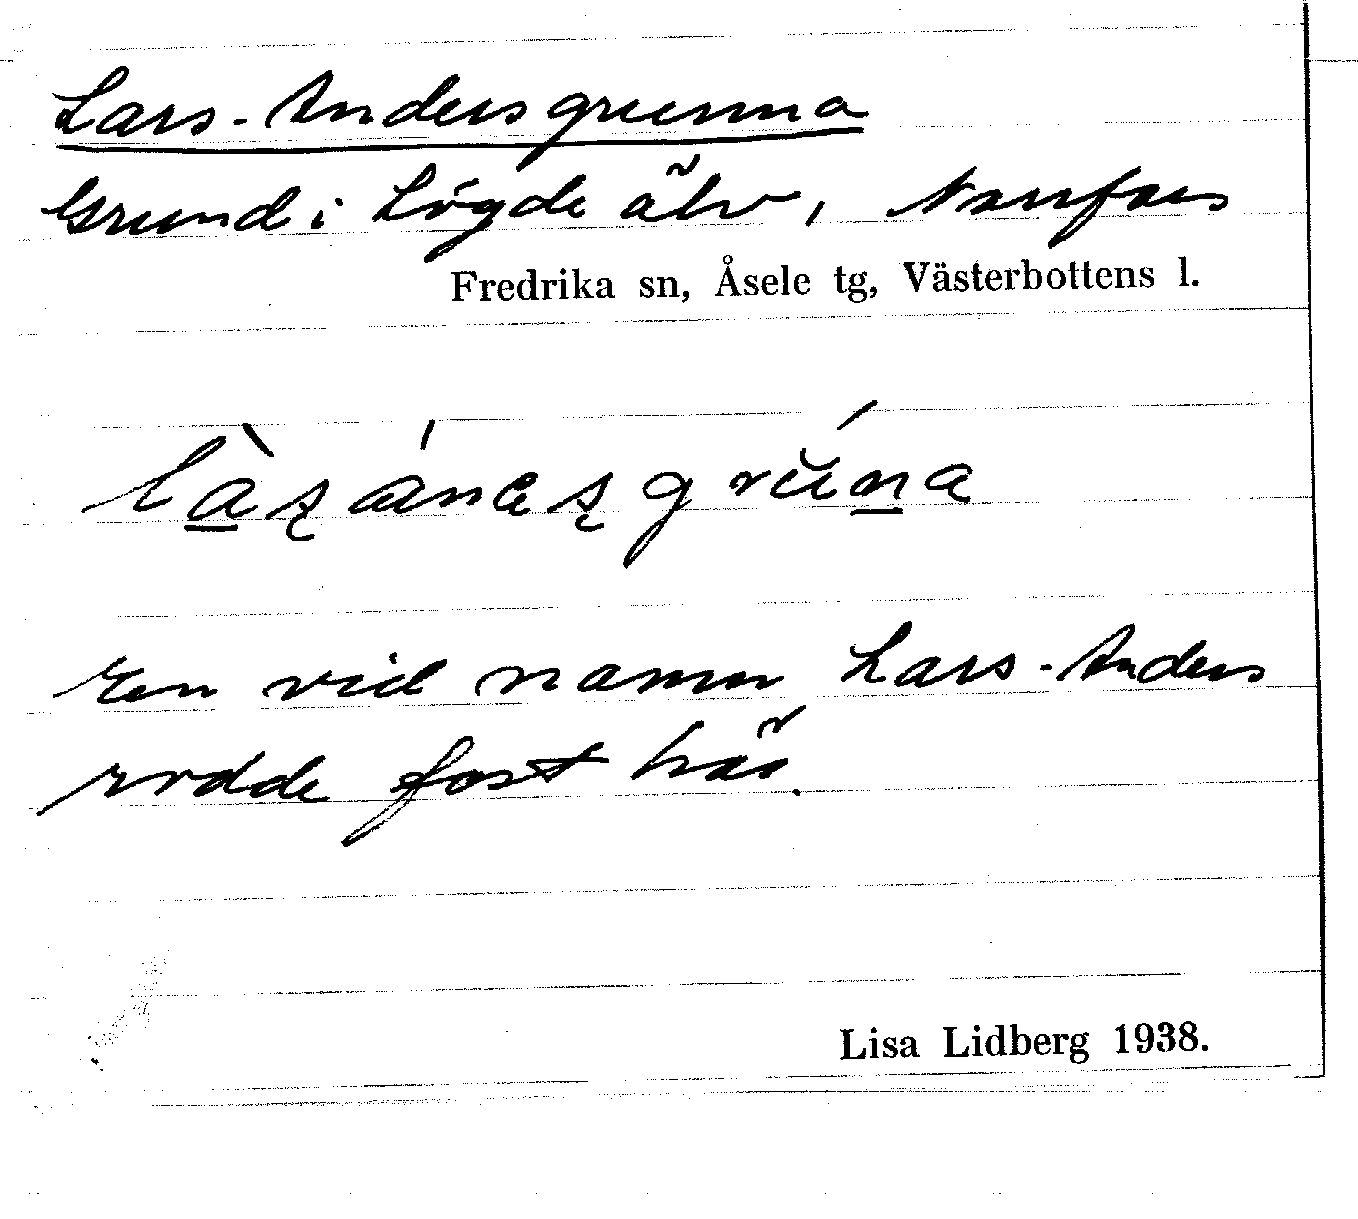 Lars-Andersgrunna
Grund i Lögde älv, Norrfors
Fredrika sn, Åsele tg, Västerbottens l.
En vid namn Lars-Anders
rodde fast här.
Lisa Lidberg 1938.